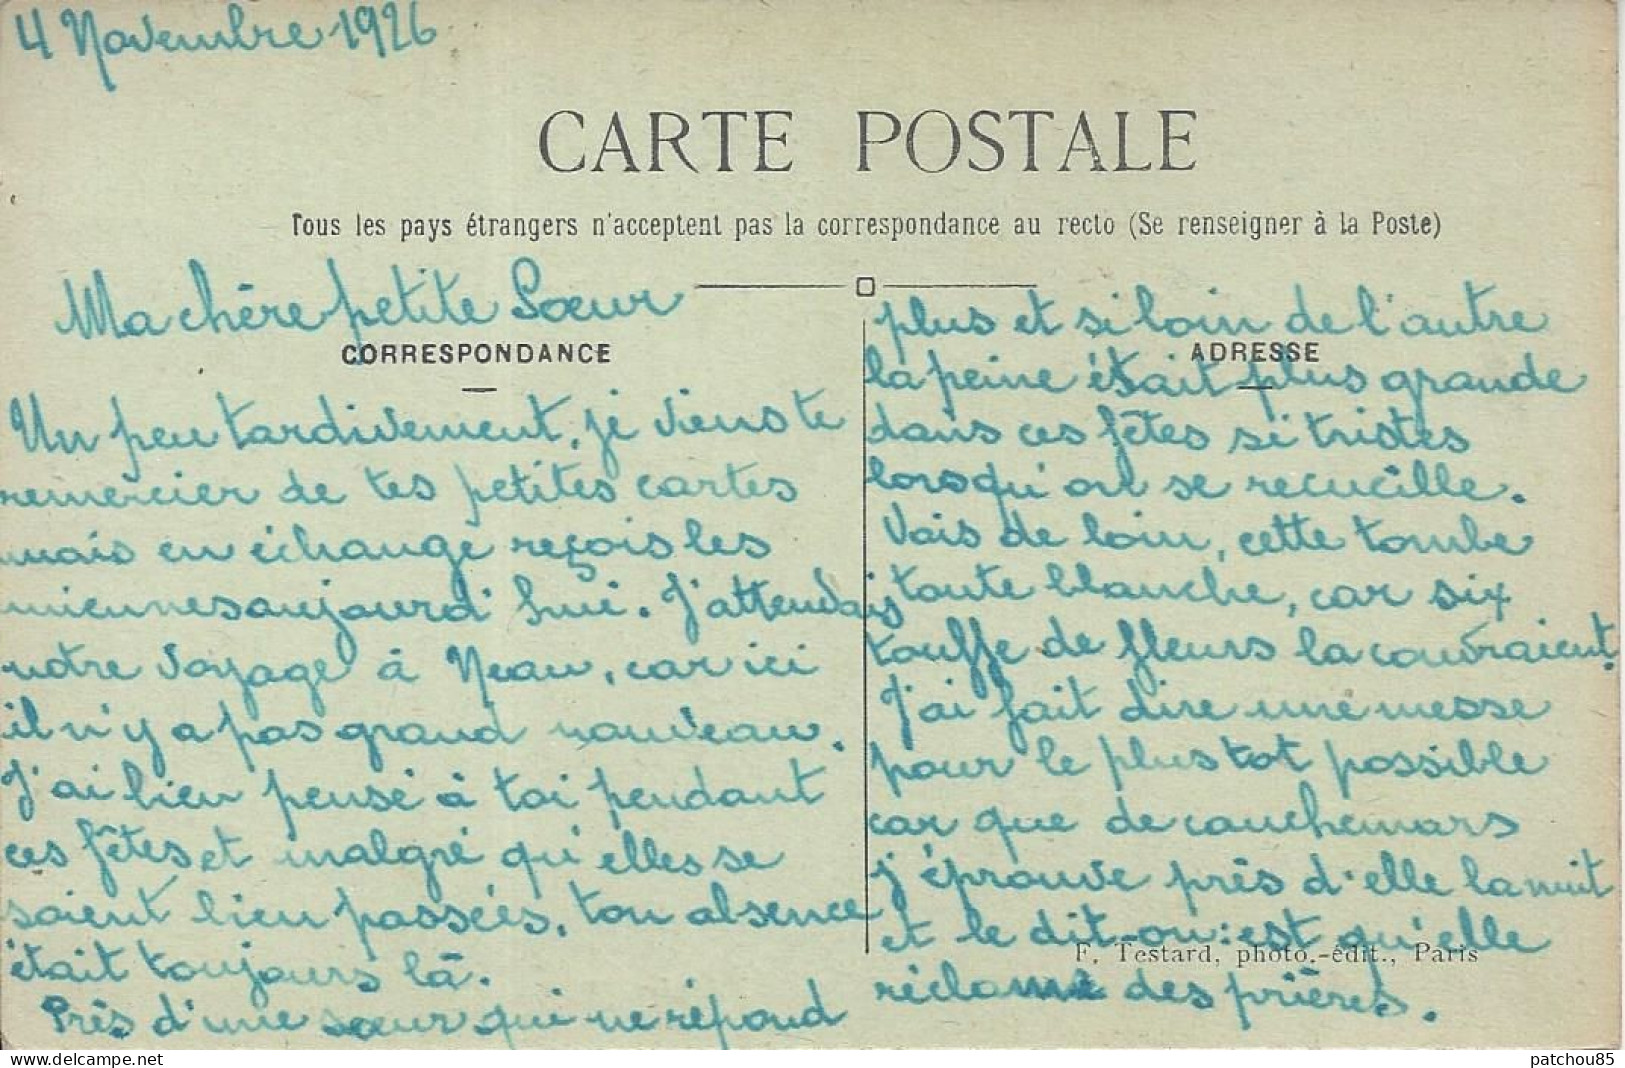 4 Novembre 1926
CARTE POSTALE
Tous les pays étrangers n'acceptent pas la correspondance au recto (Se renseigner à la Poste)
Ma chère petite Sœur
CORRESPONDANCE
Un peu tardivement, je viens te
remercier de tes petites cartes
mais en échange reçois les
miennes aujourd'hui. J'attendais
votre voyage à Neau, car ici
il n'y a pas grand nouveau.
J'ai bien pensé à toi pendant
ces fêtes et malgré qu'elles se
soient bien passées, ton absence
était toujours là.
Près d'une sœur qui ne répond
plus et si loin de l'autre
ADRESSE
la peine était plus grande
dans ces fêtes si tristes
lorsqu'on se recueille.
Vois de loin, cette tombe
toute blanche, car six
touffe de fleurs la couvraient.
J'ai fait dire une messe
pour le plus tot possible
car que de cauchemars
j'éprouve près d'elle la nuit
et le dit-on: est qu'elle
réclame des prières.
F. Testard, photo.-édit., Paris
www.delcampe.net
patchou85